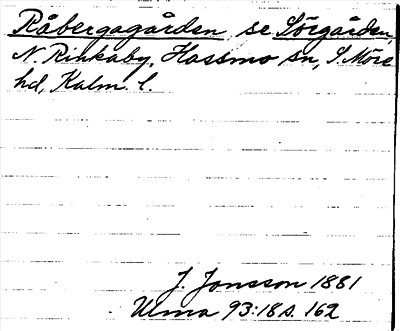 Råbergagården se Sörgården,
N. Rinkaby, Hossmo sn, S. Möre
hd, Kalm. l.
J. Jonsson 1881
Ulma 93:18 s. 162